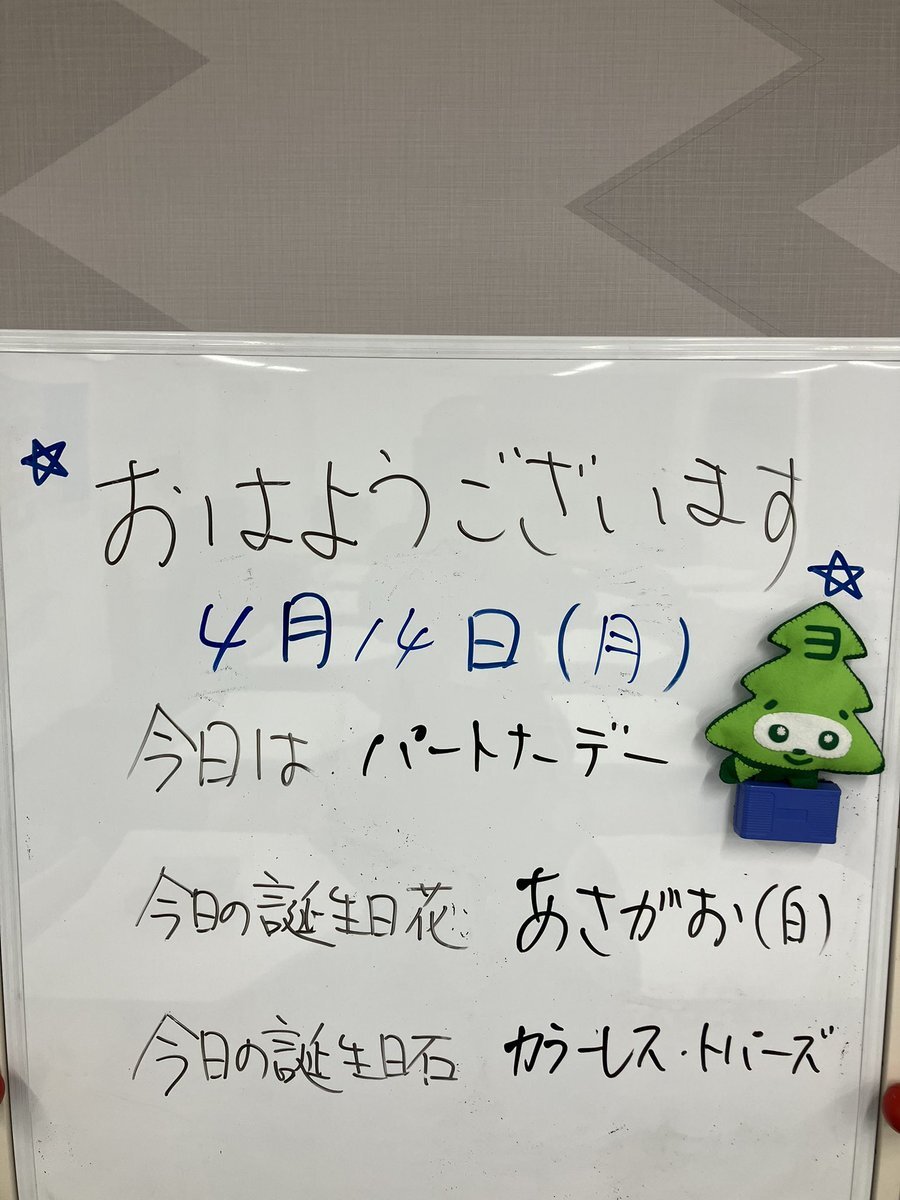 おはようございます
4月14日(月)
今日は パートナーデー
ヨ
今日の誕生日花 あさがお(白)
今日の誕生日石 カラーレス・トパーズ